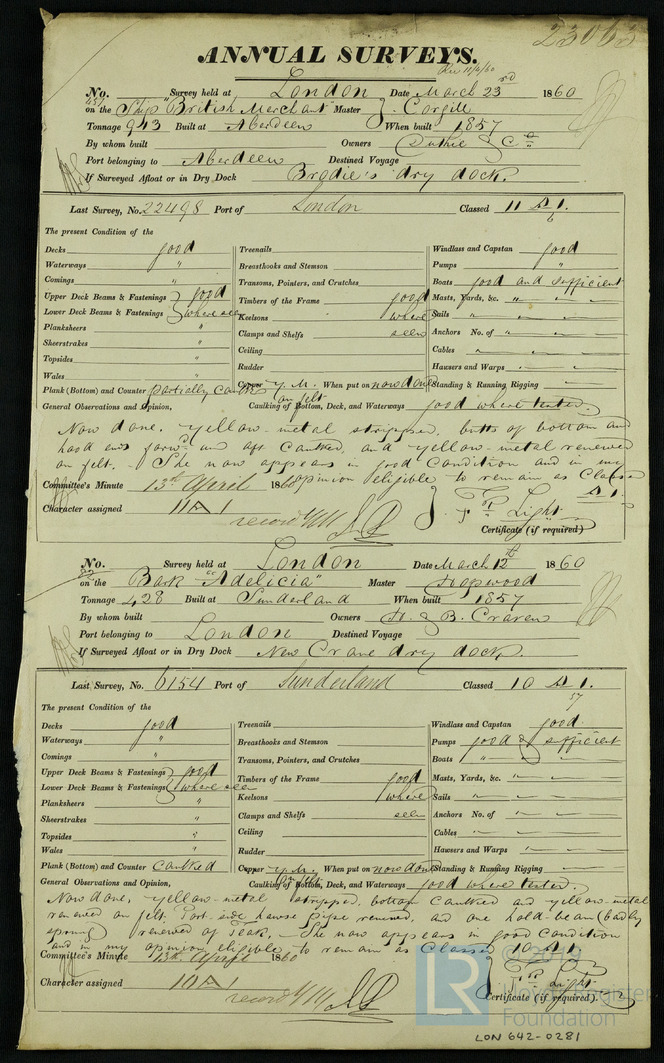 23063
ANNUAL SURVEYS.
Rec 11/4/60
No. Survey held at London Date March 23rd 1860
on the Ship "British Merchant" Master J. Cargill
Tonnage 943 Built at Aberdeen When built 1857
By whom built Owners Duthie & Co
Port belonging to Aberdeen Destined Voyage
If Surveyed Afloat or in Dry Dock Brodie's dry dock.
Last Survey, No. 22498 Port of London Classed 11 A 1.
6
The present Condition of the
Decks good Treenails Windlass and Capstan good
Waterways " Breasthooks and Stemson Pumps "
Comings " Transoms, Pointers, and Crutches Boats good and sufficient
Upper Deck Beams & Fastenings good Timbers of the Frame good Masts, Yards, &c. " " "
Lower Deck Beams & Fastenings where seen Keelsons where Sails
Planksheers " Clamps and Shelfs seen Anchors No. of "
Sheerstrakes " Ceiling Cables "
Topsides " Rudder Hawsers and Warps "
Wales "
Plank (Bottom) and Counter partially caulked Copper y. M. When put on now done Standing & Running Rigging
on felt
General Observations and Opinion, Caulking of Bottom, Deck, and Waterways good where tested.
Now done, yellow-metal stripped, butts of bottom and
hood ends forwd and aft caulked, and yellow-metal renewed
on felt. - She now appears in good Condition and in my
Committee's Minute 13th April 1860 opinion eligible to remain as Classed
A 1.
Character assigned 11 A 1
record
Light
Certificate (if required)
No. Survey held at London Date March 12th 1860
on the Bark "Adelicia" Master Hopwood
Tonnage 428 Built at Sunderland When built 1857
By whom built Owners H. & B. Craven
Port belonging to London Destined Voyage
If Surveyed Afloat or in Dry Dock New Crane dry dock.
Last Survey, No. 6154 Port of Sunderland Classed 10 A 1.
57
The present Condition of the
Decks good Treenails Windlass and Capstan good
Waterways " Breasthooks and Stemson Pumps good & sufficient
Comings " Transoms, Pointers, and Crutches Boats " "
Upper Deck Beams & Fastenings good Timbers of the Frame good Masts, Yards, &c. "
Lower Deck Beams & Fastenings where seen Keelsons where Sails
Planksheers " Clamps and Shelfs seen Anchors No. of "
Sheerstrakes " Ceiling Cables
Topsides " Rudder Hawsers and Warps "
Wales "
Plank (Bottom) and Counter Caulked Copper y. M. When put on now done Standing & Running Rigging
on felt
General Observations and Opinion, Caulking of Bottom, Deck, and Waterways good where tested.
Now done, yellow-metal stripped, bottom caulked and yellow-metal
renewed on felt, Port side hawse pipe renewed, and one hold-beam (badly
sprung) renewed of Teak. - She now appears in good Condition
and in my opinion eligible to remain as Classed 10 A 1
Committee's Minute 13th April 1860
Character assigned 10 A 1
record
Light
Certificate (if required).
© 2019
LR
Lloyd's Register
Foundation
LON 642-0281